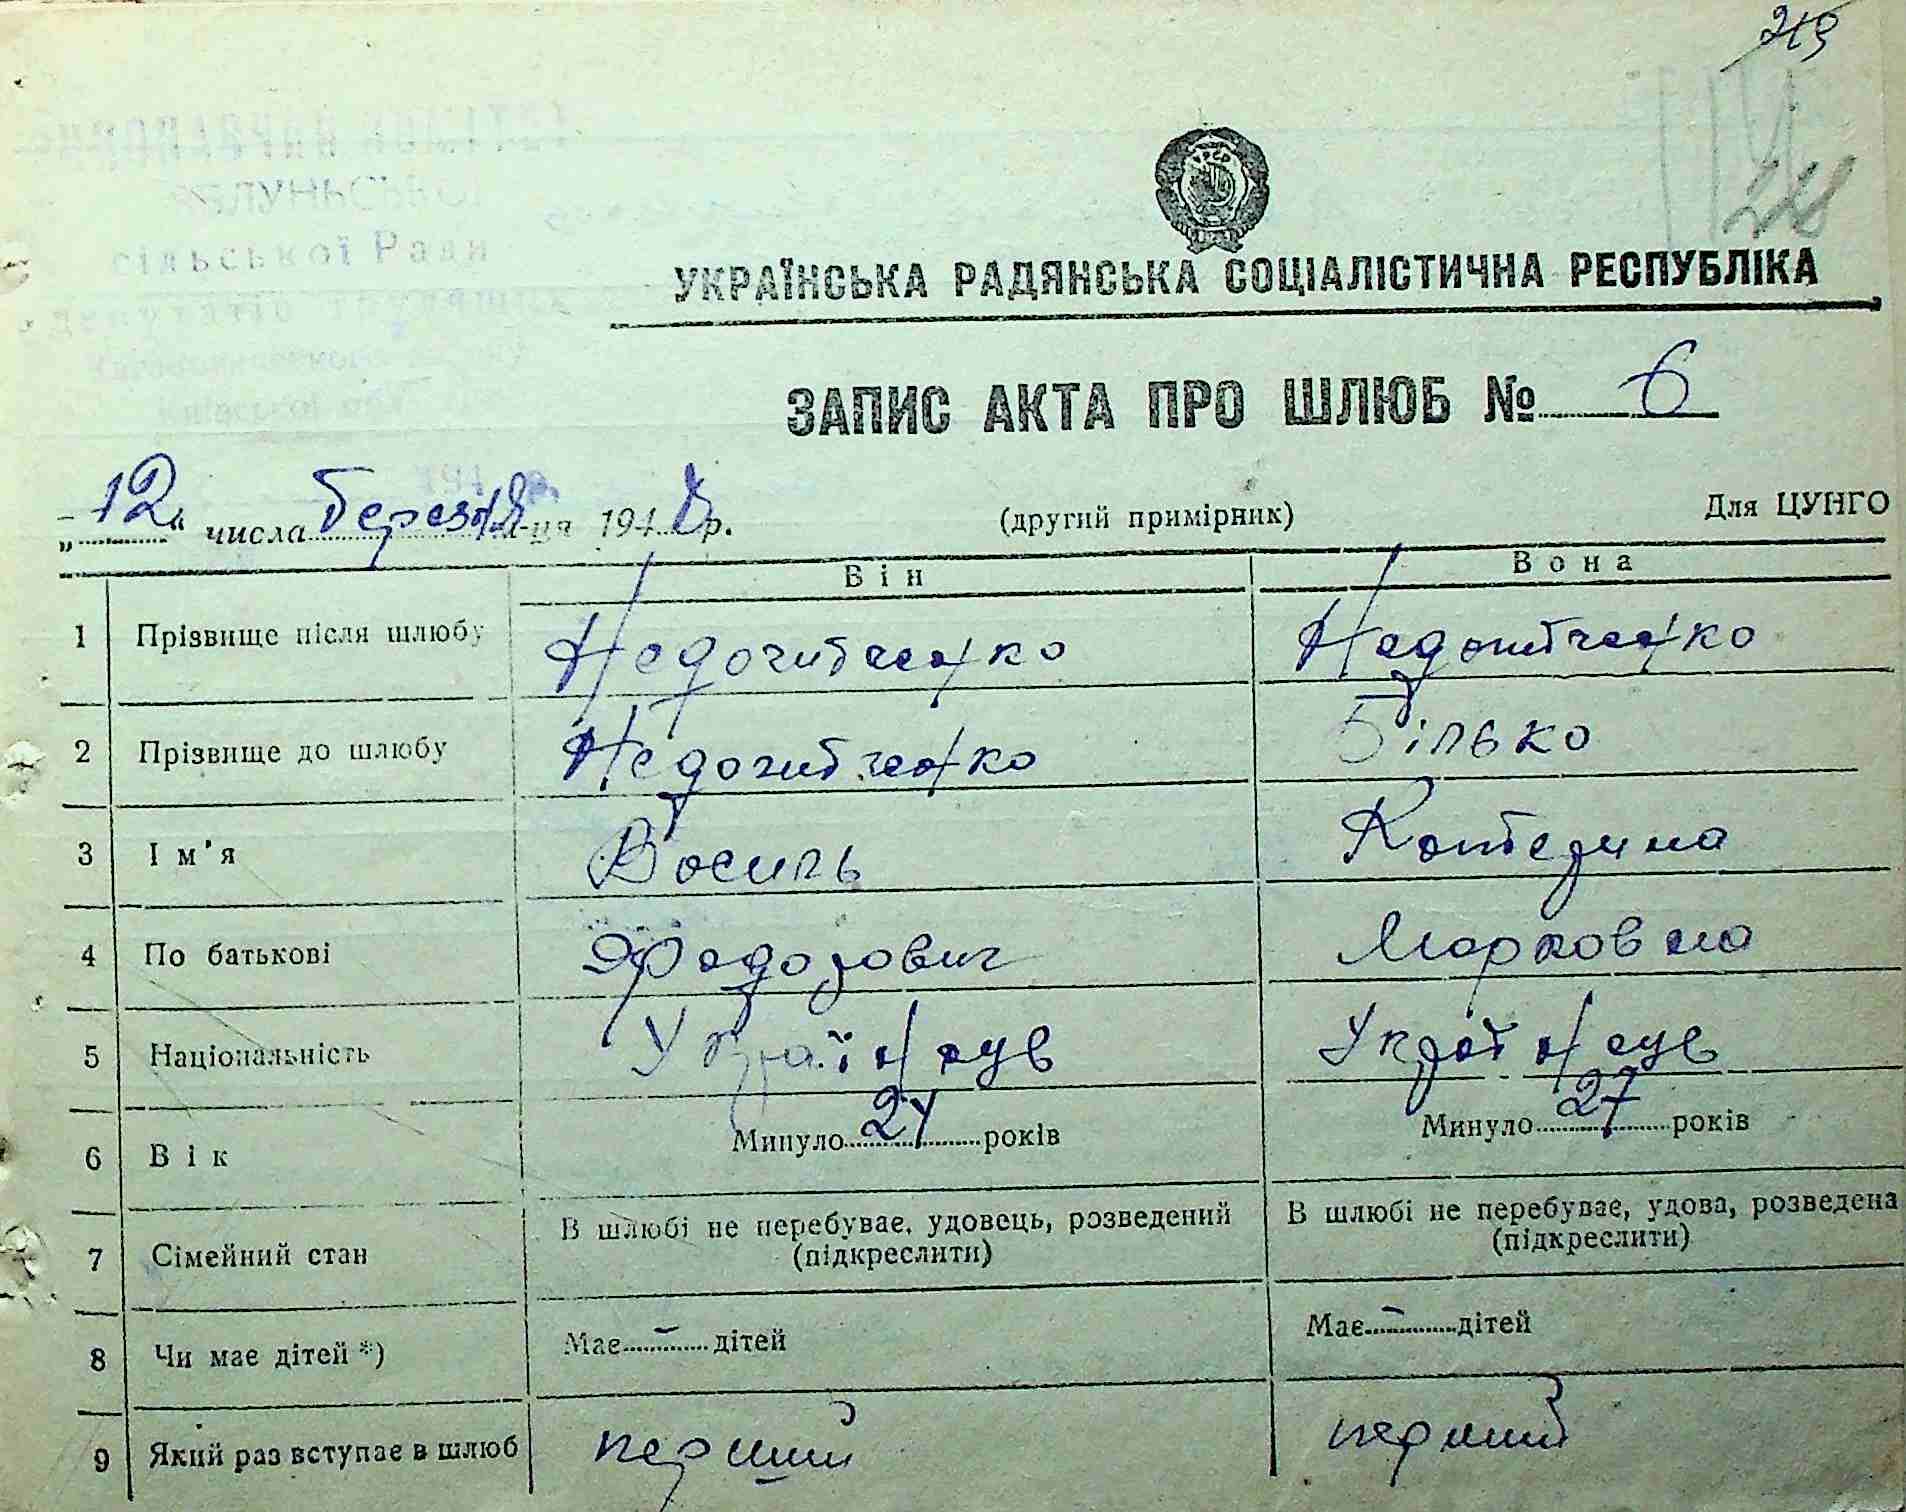 219
УКРАЇНСЬКА РАДЯНСЬКА СОЦІАЛІСТИЧНА РЕСПУБЛІКА
ЗАПИС АКТА ПРО ШЛЮБ № 6
„12“ числа березня м-ця 1948 р. (другий примірник) Для ЦУНГО
Він Вона
1 Прізвище після шлюбу Недочитченко Недочитченко
2 Прізвище до шлюбу Недочитченко Білько
3 Ім'я Василь Катерина
4 По батькові Федорович Марковна
5 Національність Українець Українець
6 Вік Минуло 24 років Минуло 27 років
7 Сімейний стан В шлюбі не перебуває, удовець, розведений (підкреслити) В шлюбі не перебуває, удова, розведена (підкреслити)
8 Чи має дітей *) Має – дітей Має – дітей
9 Який раз вступає в шлюб перший перший